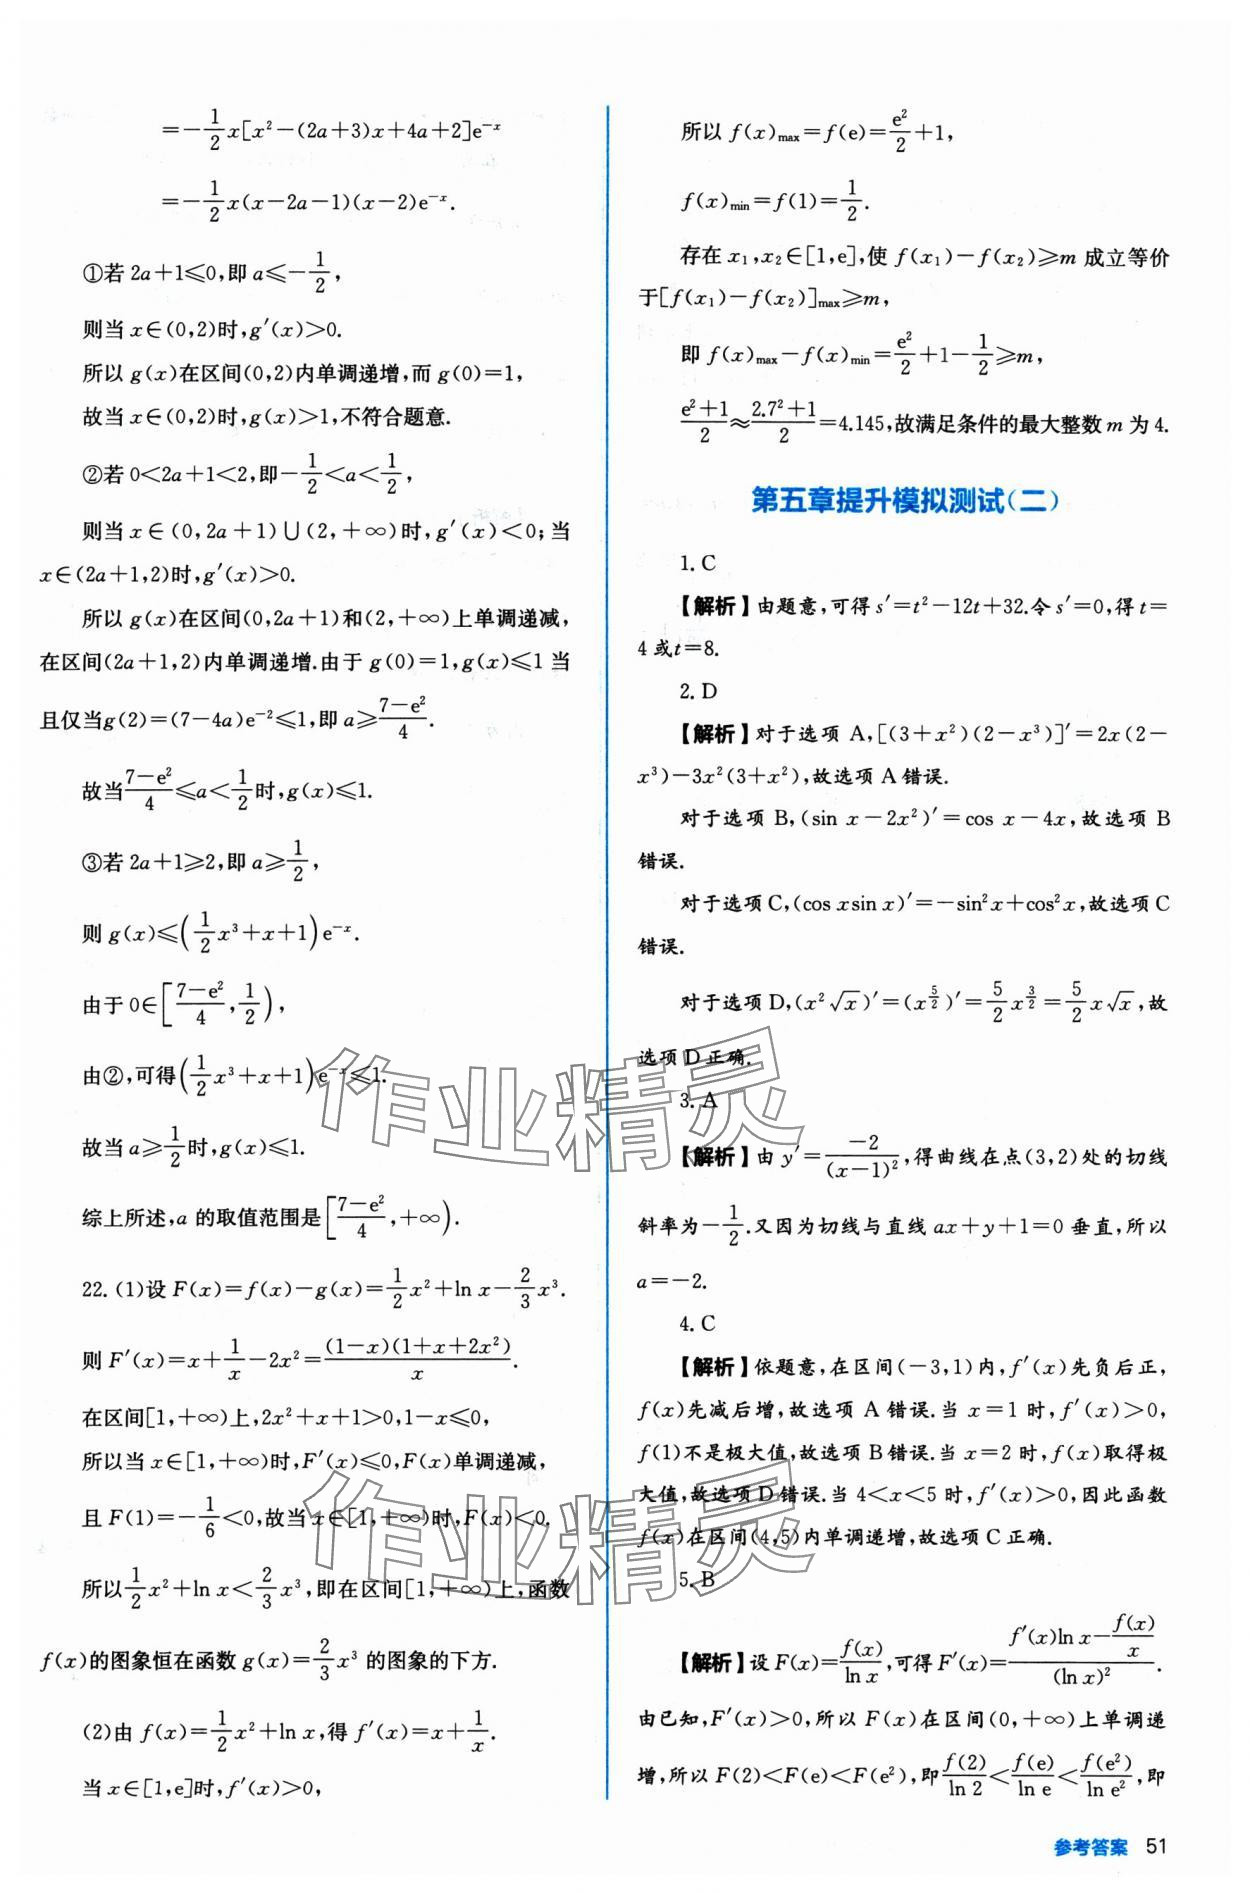 =-1/2x[x²-(2a+3)x+4a+2]e⁻ˣ
=-1/2x(x-2a-1)(x-2)e⁻ˣ.
①若 2a+1≤0,即 a≤-1/2,
则当 x∈(0,2)时,g′(x)>0.
所以 g(x)在区间(0,2)内单调递增,而 g(0)=1,
故当 x∈(0,2)时,g(x)>1,不符合题意.
②若 0<2a+1<2,即-1/2<a<1/2,
则当 x∈(0,2a+1)∪(2,+∞)时,g′(x)<0;当
x∈(2a+1,2)时,g′(x)>0.
所以 g(x)在区间(0,2a+1)和(2,+∞)上单调递减,
在区间(2a+1,2)内单调递增.由于 g(0)=1,g(x)≤1 当
且仅当g(2)=(7-4a)e⁻²≤1,即 a≥(7-e²)/4.
故当(7-e²)/4≤a<1/2时,g(x)≤1.
③若 2a+1≥2,即 a≥1/2,
则 g(x)≤(1/2x³+x+1)e⁻ˣ.
由于 0∈[(7-e²)/4,1/2),
由②,可得(1/2x³+x+1)e⁻ˣ≤1.
故当 a≥1/2时,g(x)≤1.
综上所述,a 的取值范围是[(7-e²)/4,+∞).
22.(1)设 F(x)=f(x)-g(x)=1/2x²+ln x-2/3x³.
则 F′(x)=x+1/x-2x²=(1-x)(1+x+2x²)/x.
在区间[1,+∞)上,2x²+x+1>0,1-x≤0,
所以当 x∈[1,+∞)时,F′(x)≤0,F(x)单调递减,
且 F(1)=-1/6<0,故当 x∈[1,+∞)时,F(x)<0.
所以1/2x²+ln x<2/3x³,即在区间[1,+∞)上,函数
f(x)的图象恒在函数 g(x)=2/3x³ 的图象的下方.
(2)由 f(x)=1/2x²+ln x,得 f′(x)=x+1/x.
当 x∈[1,e]时,f′(x)>0,
所以 f(x)max=f(e)=e²/2+1,
f(x)min=f(1)=1/2.
存在 x₁,x₂∈[1,e],使 f(x₁)-f(x₂)≥m 成立等价
于[f(x₁)-f(x₂)]max≥m,
即 f(x)max-f(x)min=e²/2+1-1/2≥m,
(e²+1)/2≈(2.7²+1)/2=4.145,故满足条件的最大整数 m 为 4.
第五章提升模拟测试(二)
1. C
【解析】由题意,可得 s′=t²-12t+32.令 s′=0,得 t=
4 或t=8.
2. D
【解析】对于选项 A,[(3+x²)(2-x³)]′=2x(2-
x³)-3x²(3+x²),故选项 A 错误.
对于选项 B,(sin x-2x²)′=cos x-4x,故选项 B
错误.
对于选项 C,(cos xsin x)′=-sin²x+cos²x,故选项 C
错误.
对于选项 D,(x²√x)′=(x^(5/2))′=5/2x^(3/2)=5/2x√x,故
选项 D 正确.
3. A
【解析】由 y′=-2/(x-1)²,得曲线在点(3,2)处的切线
斜率为-1/2.又因为切线与直线 ax+y+1=0 垂直,所以
a=-2.
4. C
【解析】依题意,在区间(-3,1)内,f′(x)先负后正,
f(x)先减后增,故选项 A 错误.当 x=1 时,f′(x)>0,
f(1)不是极大值,故选项 B错误.当 x=2 时,f(x)取得极
大值,故选项 D 错误.当 4<x<5 时,f′(x)>0,因此函数
f(x)在区间(4,5)内单调递增,故选项 C 正确.
5. B
【解析】设 F(x)=f(x)/ln x,可得 F′(x)=(f′(x)ln x-f(x)/x)/(ln x)².
由已知,F′(x)>0,所以 F(x)在区间(0,+∞)上单调递
增,所以 F(2)<F(e)<F(e²),即f(2)/ln 2<f(e)/ln e<f(e²)/ln e²,即
作业精灵
作业精灵
参考答案 51